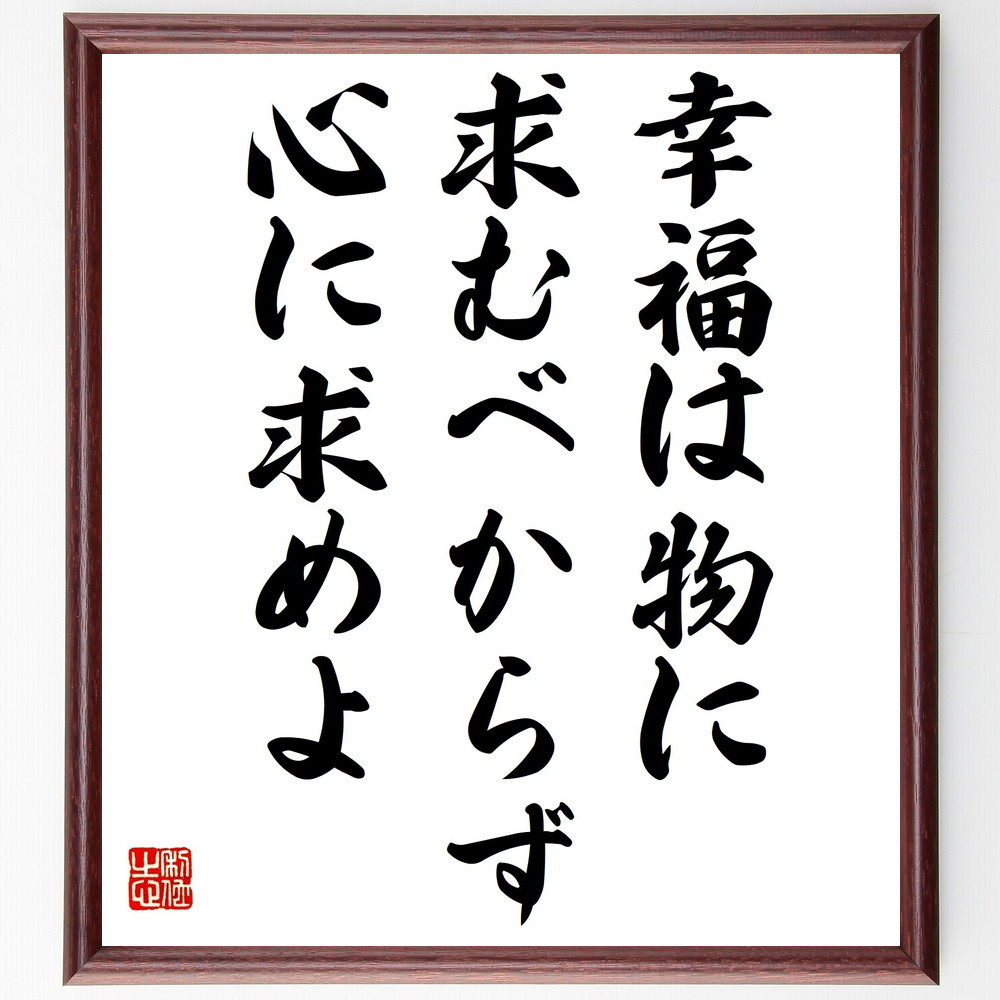 幸福は物に
求むべからず
心に求めよ